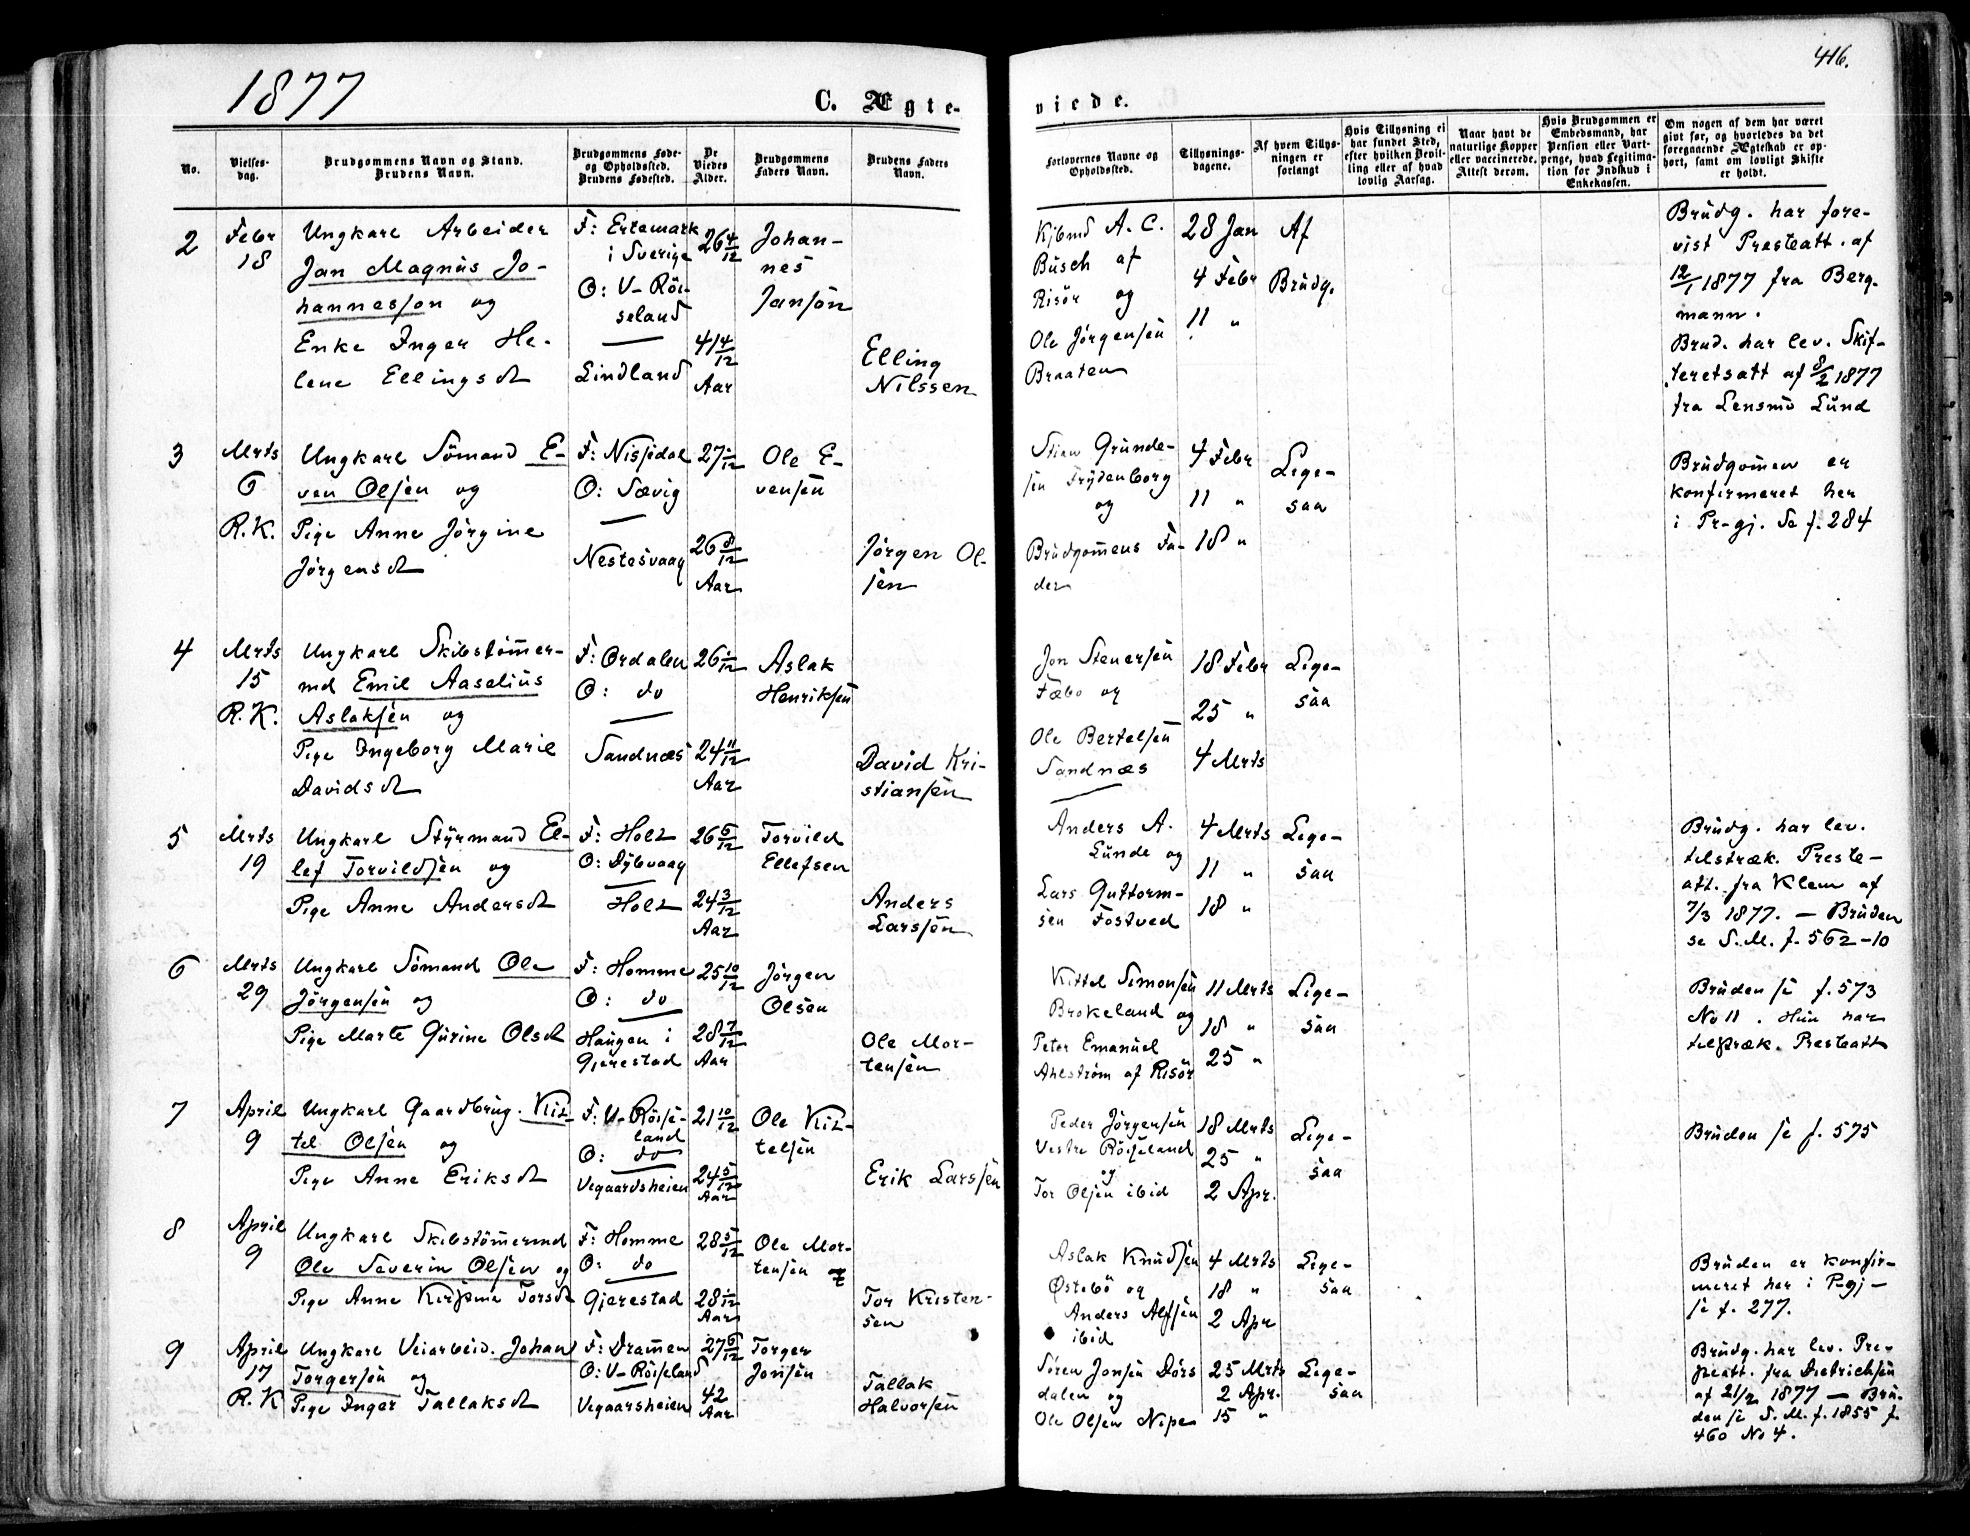 1877
C. Ægte-
viede.
416.
No.
Vielses-
dag.
Brudgommens Navn og Stand.
Brudens Navn.
Brudgommens Føde-
og Opholdssted.
Brudens Fødested.
Dr
Viedes
Alder.
Brudgommens
Faders Navn.
Brudens Faders
Navn.
Forlovernes Navne og
Opholdssted.
Tillysnings-
dagene.
Af hvem Tillys-
ningen er
forlangt
Hvis Tillysning ei
har fundet Sted,
efter hvilken Bevil-
ling eller af hvad
lovlig Aarsag.
Naar havt de
naturlige Kopper
eller vaccinerede.
Attest derom.
Hvis Brudgommen er
Embedsmand, har
Pension eller Vart-
penge, hvad Legitima-
tion for Indskud i
Enkekassen.
Om nogen af dem har været
givt før, og hvorledes da det
foregaaende Ægteskab er op-
hørt, samt om lovligt Skifte
er holdt.
2
Febr
18
Ungkarl Arbeider
Jan Magnus Jo-
hannesson og
Enke Inger He-
lene Ellingsdt
F: Ertemark
i Sverige
O: V-Röi-
seland
Lindland
26 4/12
41 4/12
Aar
Johan-
nes
Janson
Elling
Nilssen
Kjbmd A. C.
Busch af
Risör og
Ole Jörgensen
Braaten
28 Jan
4 Febr
11 "
Af
Brudg.
Brudg. har fore-
vist Presteatt. af
12/1 1877 fra Berg-
mann.
Brud. har lev. Skif-
teretsatt af 8/2 1877
fra Lensmd Lund
3
Mrts
6
R.K.
Ungkarl Sömand E-
ven Olsen og
Pige Anne Jörgine
Jörgensdt
F: Nissidal
O: Sævig
Nestesvaag
27 1/12
26 8/12
Aar
Ole E-
vensen
Jörgen Ol-
sen
Stian Grunde-
sen Frydenborg
og
Brudgomens Fa-
der
4 Febr
11 "
18 "
Lige-
saa
Brudgomen er
konfirmeret her
i Pr-gj. Se f. 284
4
Mrts
15
R.K.
Ungkarl Skibstömer-
md Emil Aaselius
Aslaksen og
Pige Ingeborg Marie
Davidsdt
F: Ordalen
O: do
Sandnæs
26 1/12
24 11/12
Aar
Aslak
Henriksen
David Kri-
stiansen
Jon Stenersen
Fæbo og
Ole Bertelsen
Sandnæs
18 Febr
25 "
4 Mrts
Lige-
saa
5
Mrts
19
Ungkarl Styrmand El-
lef Torvildsen og
Pige Anne Andersdt
F: Holt
O: Dybvaag
Holt
26 6/12
24 3/12
Aar
Torvild
Ellefsen
Anders
Larssen
Anders A.
Lunde og
Lars Guttorm-
sen Fostved
4 Mrts
11 "
18 "
Lige-
saa
Brudg. har lev.
tilstræk. Preste-
att. fra Klem af
7/3 1877. — Bruden
se S.M. f. 562-10
6
Mrts
29
Ungkarl Sömand Ole
Jörgensen og
Pige Marte Gurine Olsdt
F: Homme
O: do
Haugen i
Gjerestad
25 10/12
28 7/12
Aar
Jörgen
Olsen
Ole Mor-
tensen
Kittel Simonsen
Brokeland og
Peter Emanuel
Ahlström af Risör
11 Mrts
18 "
25 "
Lige-
saa
Bruden se f. 573
No 11. Hun har
tilstræk. Presteatt
7
April
9
Ungkarl Gaardbrug. Kit-
tel Olsen og
Pige Anne Eriksdt
F: V-Röise-
land
O: do
Vegaardsheien
21 10/12
24 5/12
Aar
Ole Kit-
telsen
Erik Larssen
Peder Jörgensen
Vestre Röiseland
og
Tor Olsen ibid
18 Mrts
25 "
2 Apr.
Lige-
saa
Bruden se f. 575
8
April
9
Ungkarl Skibstömermd
Ole Severin Olsen og
Pige Anne Kirstine Torsdt
F: Homme
O: do
Gjerestad
28 5/12
28 1/12
Aar
Ole Mor-
tensen
Tor Kristen-
sen
Aslak Knudsen
Östebö og
Anders Alfsen
ibid
4 Mrts
18 "
2 Apr
Lige-
saa
Bruden er konfir-
meret her i P-gj-
se f. 277.
9
April
17
R.K
Ungkarl Veiarbeid. Johan
Torgersen og
Pige Inger Tallaksdt
F: Dramen
O: V-Röiseland
Vegaarsheien
27 6/12
42
Aar
Torger
Jonsen
Tallak
Halvorsen
Sören Jonsen Dörs
dalen og
Ole Olsen Nipe
25 Mrts
2 Apr.
15 "
Lige-
saa
Brudg. har lev. Pre-
steatt. fra Dietrichsen
af 21/2 1877 — Bru-
den se S.M. f. 1855 f.
460 No 4.